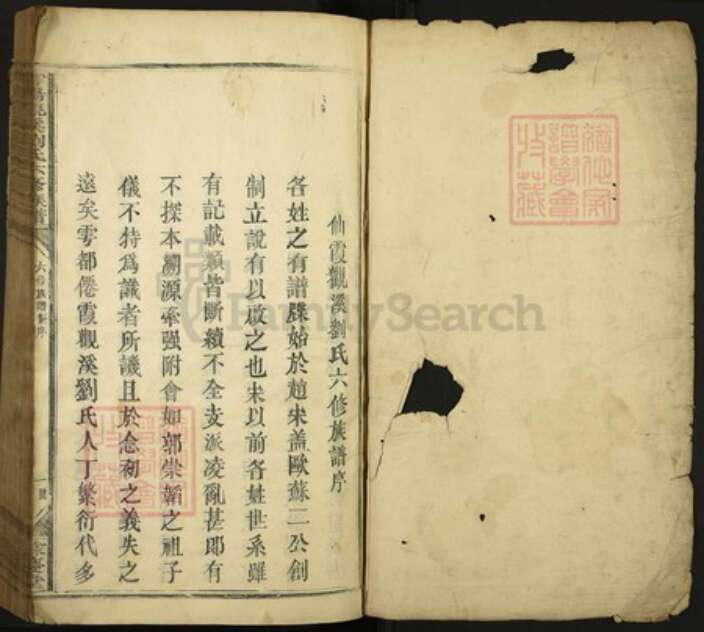 仙霞觀溪劉氏六修族譜序
各姓之有譜牒始於趙宋蓋歐蘇二公創
制立說有以啟之也宋以前各姓世系雖
有記載類皆斷續不全支派凌亂甚即有
不探本溯源牽强附會如郭崇韜之祖子
儀不特為識者所譏且於念初之義失之
遠矣雩都僊霞觀溪劉氏人丁繁衍代多
劉氏六修族譜
六修族譜序
一
FamilySearch
譜學會
收藏